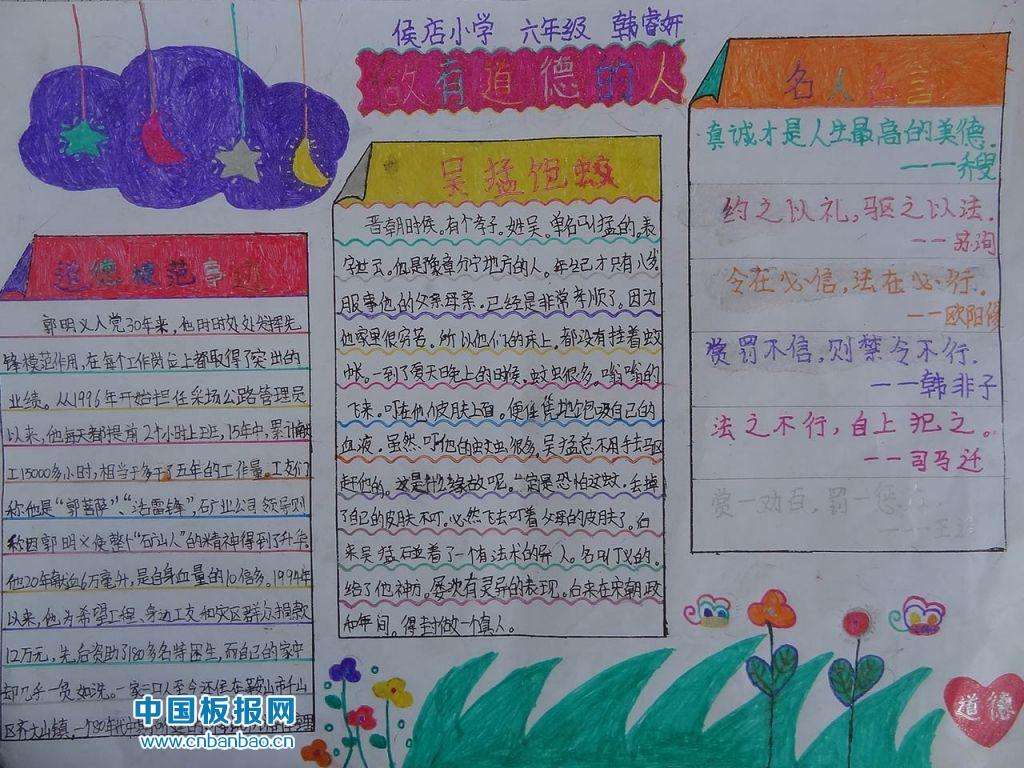 侯店小学 六年级 韩睿妍
做有道德的人
道德模范事迹
郭明义入党30年来,他时时处处发挥先
锋模范作用,在每个工作岗位上都取得了突出的
业绩。从1996年开始担任采场公路管理员
以来,他每天都提前2个小时上班,15年中,累计献
工15000多小时,相当于多干了五年的工作量。工友们
称他是“郭菩萨”、“活雷锋”,矿业公司领导则
称因郭明义使整个“矿山人”的精神得到了升华
他20年献血6万毫升,是自身血量的10倍多。1994年
以来,他为希望工程、身边工友和灾区群众捐款
12万元,先后资助了180多名特困生,而自己的家中
却几乎一贫如洗。一家三口人至今还住在鞍山市千山
区齐大山镇,一个80年代中期
吴猛饱蚊
晋朝时候。有个孝子。姓吴。单名叫猛的。表
字世云。他是豫章分宁地方的人。年纪才只有八岁。
服事他的父亲母亲。已经是非常孝顺了。因为
他家里很穷苦。所以他们的床上。都没有挂着蚊
帐。一到了夏天日晚上的时候。蚊虫很多。嗡嗡的
飞来。叮在他们皮肤上面。便任凭地饱吸自己的
血液。虽然叮他的蚊虫很多。吴猛总不用手去驱
赶他的。这是什么缘故呢。一定是恐怕这蚊。丢掉
了自己的皮肤不叮。必然飞去叮着父母的皮肤了。后
来吴猛碰着了一个有法术的异人。名叫丁义的。
给了他神方。屡次有灵异的表现。后来在宋朝政
和年间。得封做一个真人。
名人名言
真诚才是人生最高的美德.
——乔叟
约之以礼,驱之以法.
——苏洵
令在必信,法在必行.
——欧阳修
赏罚不信,则禁令不行.
——韩非子
法之不行,自上犯之。
——司马迁
赏一劝百,罚一
道德
中国板报网
www.cnbanbao.cn